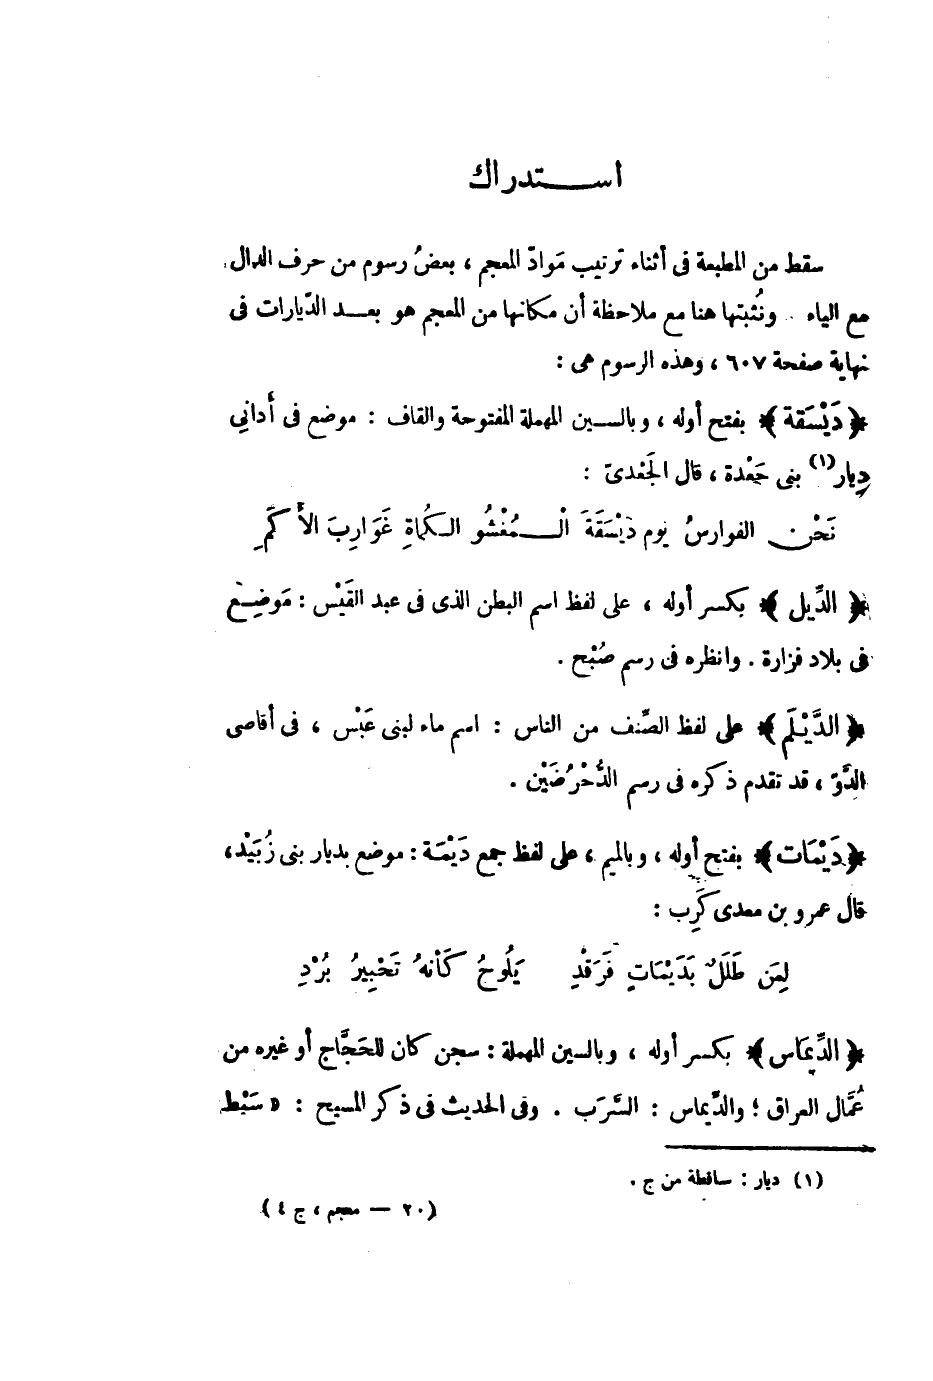 استدراك
سقط من المطبعة فى أثناء ترتيب مَوادّ المعجم ، بعضُ رسوم من حرف الدال
مع الياء . ونُثبتها هنا مع ملاحظة أن مكانها من المعجم هو بعد الدّيارات فى
نهاية صفحة ٦٠٧ ، وهذه الرسوم هى :
﴿ دَيْسَقة ﴾ بفتح أوله ، وبالسين المهملة المفتوحة والقاف : موضع فى أَدانِي
دِيار(١) بنى جَعْدة ، قال الجَعْدىّ :
نَحْن الفوارسُ يوم دَيْسَقَةَ الْـمُغْشُو الكُماةِ غَوَارِبَ الأَكَمِ
﴿ الدِّيل ﴾ بكسر أوله ، على لفظ اسم البطن الذى فى عبد القَيْس : مَوضِع
فى بلاد فزارة . وانظره فى رسم صُبْح .
﴿ الدَّيْلَم ﴾ على لفظ الصِّنف من الناس : اسم ماء لبنى عَبْس ، فى أقاصى
الدَّوّ ، قد تقدم ذكره فى رسم الدُّحْرُضَيْن .
﴿ دَيْمَات ﴾ بفتح أوله ، وبالميم ، على لفظ جمع دَيْمَة : موضع بديار بنى زُبَيْد ،
قال عمرو بن معدى كَرِب :
لِمَن طَلَلٌ بَدَيْمَاتٍ فَرَقْدِ يَلُوحُ كَأنهُ تَحْبِيرُ بُرْدِ
﴿ الدِّيمَاس ﴾ بكسر أوله ، وبالسين المهملة : سجن كان للحَجَّاج أو غيره من
عُمَّال العراق ؛ والدِّيماس : السَّرَب . وفى الحديث فى ذكر المسيح : « سَبْط
(١) ديار : ساقطة من ج .
(٢٠ — معجم ، ج ٤)